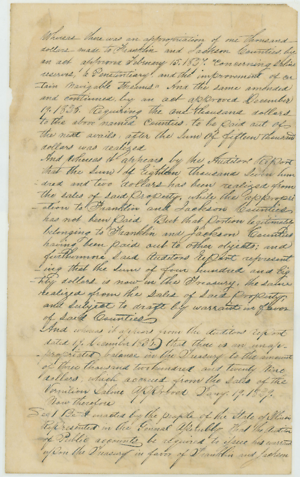 Whereas there was an appropriation of one thousand
dollars made to Franklin and Jackson Counties by
an act approved February 15. 1827. Concerning Saline
reserves, & Penitentiary and the improvement of cer
tain Navigable Streams And the same amended
and continued by an act approved December
Requiring the one thousand dollars
to the above named Counties to be paid out of
the next monies after the Sum of fifteen thousand
dollars was realized
And whereas it appears by the Auditors Report
that the Sum of Eighteen thousand Seven hun
dred and two dollars has been realized from
the sales of said Property, while the appropri
ation to Franklin and Jackson Counties
has not been paid But that portion legitimately
belonging to Franklin and Jackson Counties
having been paid out to other objects; and
furthermore Said Auditors report represent
ing that the Sum of four hundred and
dollars is now in the Treasury, the same
realized from the Sales of Said Property,
and subject to draft by warrant in favor
of Said Counties
And whereas it appears from the auditors report
dated 17 December that there is an unap
propriated balance in the Treasury to the amount
of three thousand two hundred and twenty nine
dollars, which accrued from the Sales of the
Vermilion Saline
Now therefore
Sec 1 Be it enacted by the people of the State of Illinois
Represented in the General Assembly That the Audi
tor of Public accounts be required to issue his warrant
upon the Treasury in favor of Franklin and Jackson